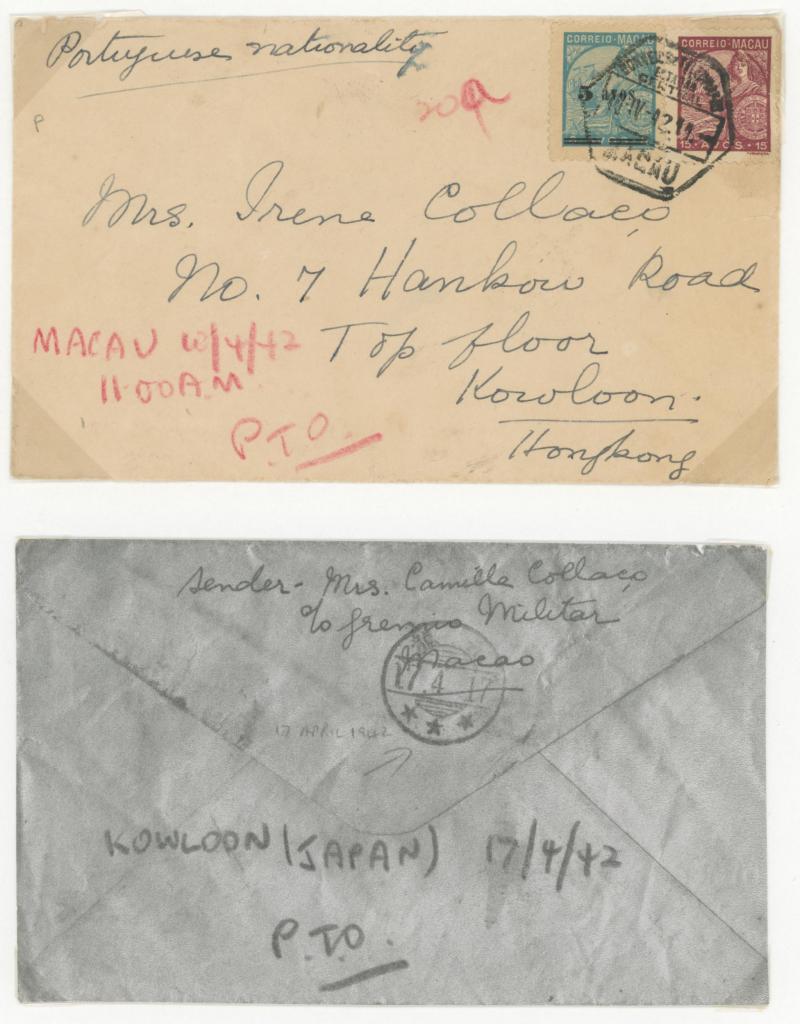 Portuguese nationality
20a
CORREIO · MACAU
5 avos
CORREIO · MACAU
15 · AVOS · 15
MACAU
P
Mrs. Irene Collaço
No. 7 Hankow Road
Top floor
Kowloon.
Hongkong
MACAU 10/4/42
11.00 A.M.
P.T.O.
Sender - Mrs. Camilla Collaço
c/o Gremio Militar
Macao
17.4.17
17 APRIL 1942
KOWLOON (JAPAN) 17/4/42
P.T.O.